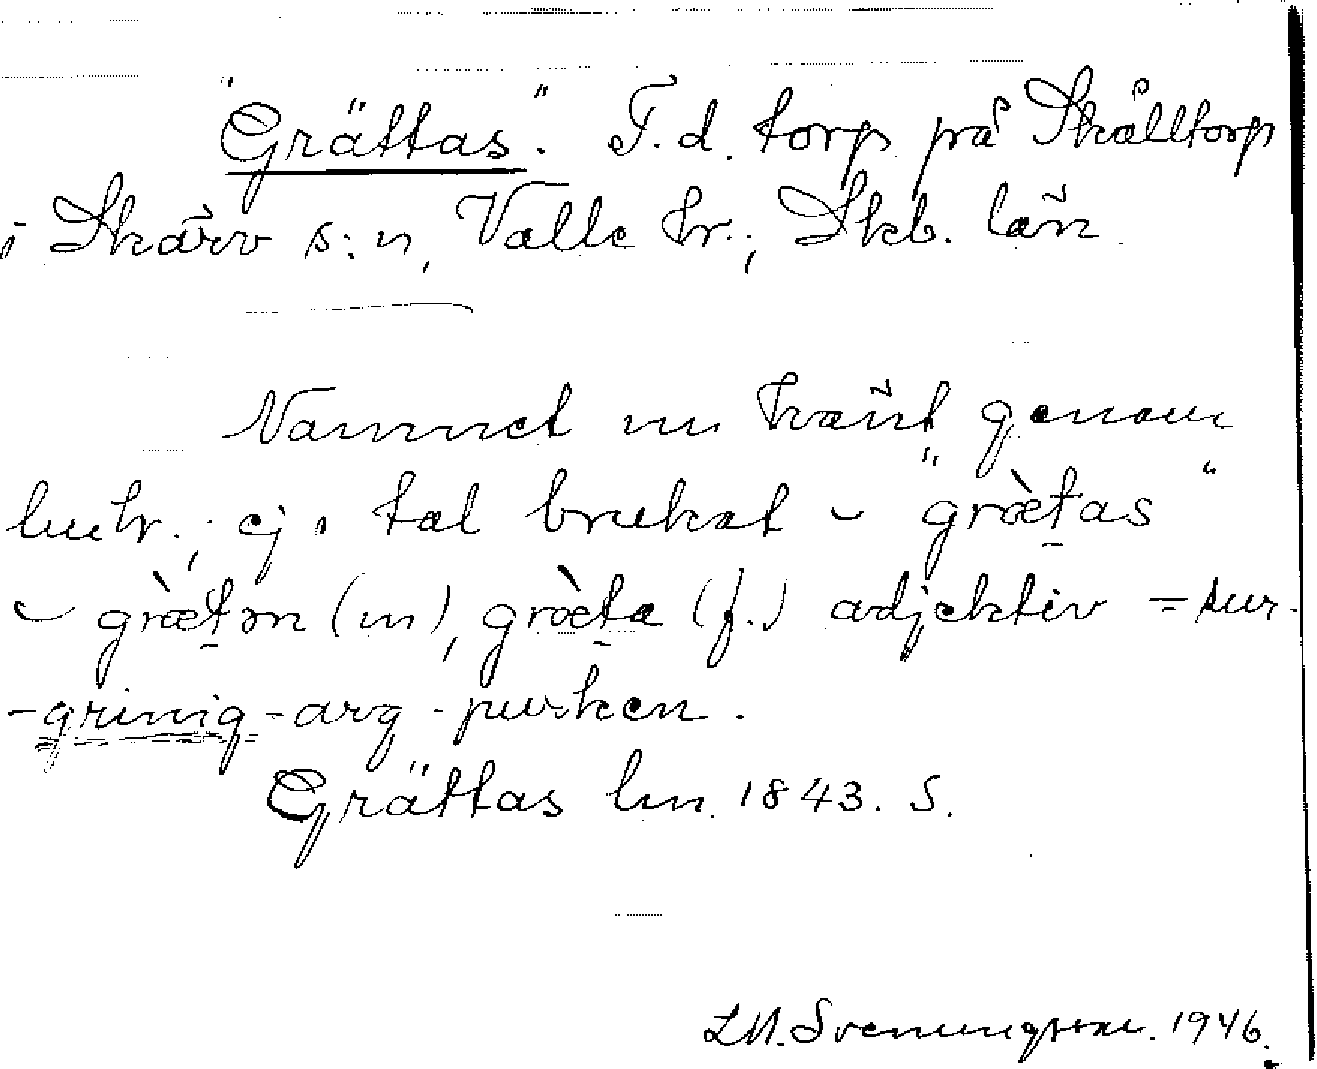 "Grättas". F.d. torp på Skålltorp
i Skärv s:n, Valle hr.; Skb. län.
Namnet nu känt genom
hdr.; ej i tal brukat ~ "græ̀tas"
~ græ̀tən (m), græ̀ta (f.) adjektiv = sur-
-grinig-arg-purken.
Grättas hn. 1843. S.
LM. Svenungsson. 1946.